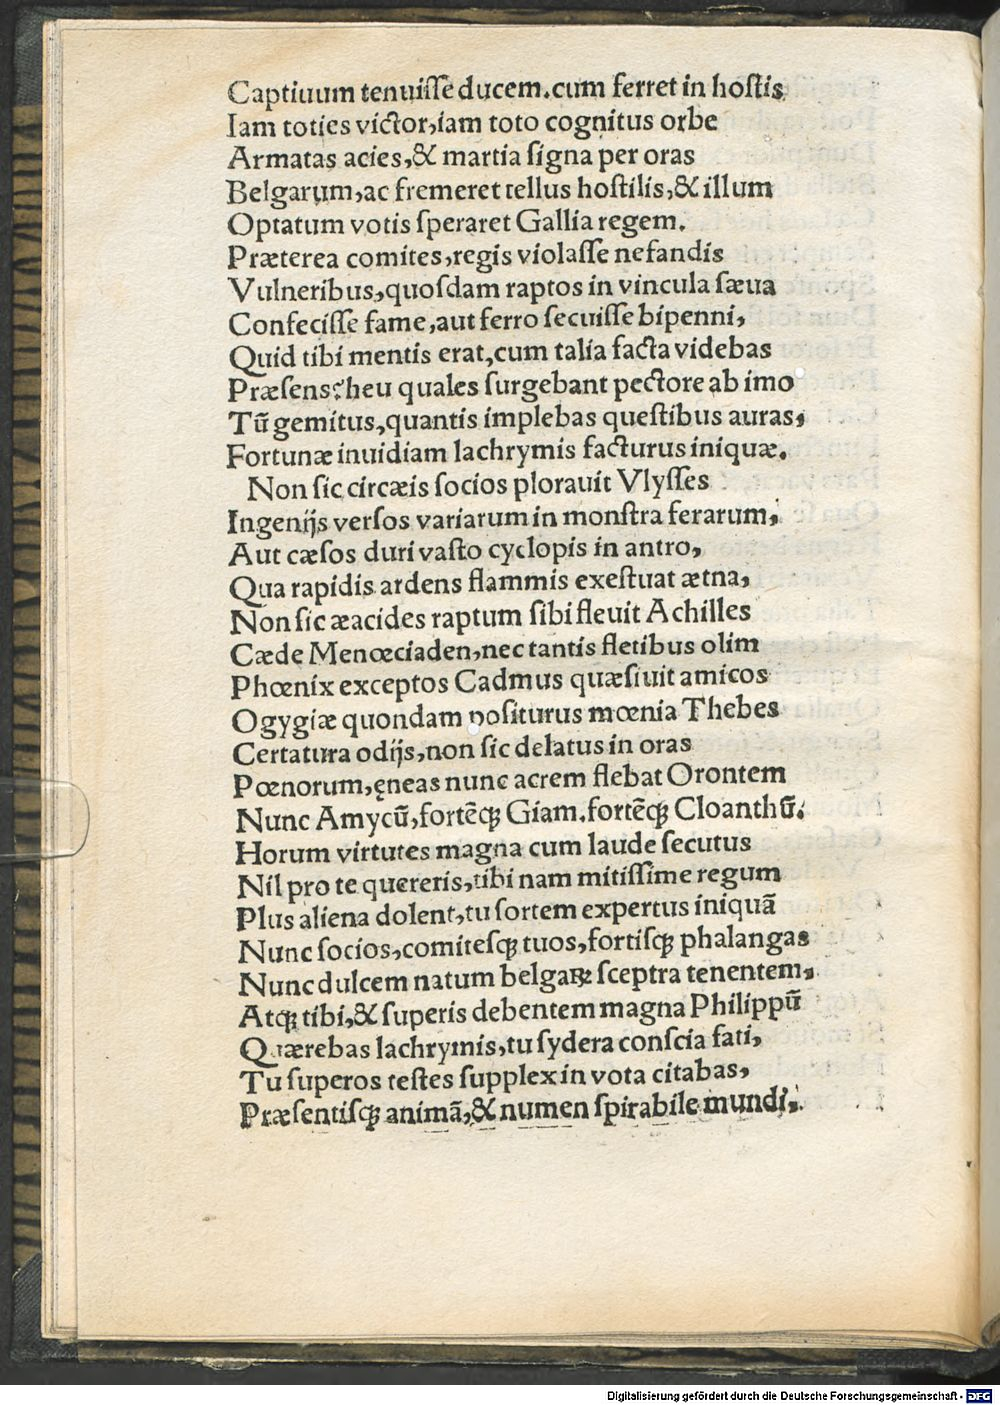 Captiuum tenuiſſe ducem.cum ferret in hoſtis
Iam toties victor,iam toto cognitus orbe
Armatas acies,& martia ſigna per oras
Belgarum,ac fremeret tellus hoſtilis,& illum
Optatum votis ſperaret Gallia regem.
Præterea comites,regis violaſſe nefandis
Vulneribus,quoſdam raptos in vincula ſæua
Confeciſſe fame,aut ferro ſecuiſſe bipenni,
Quid tibi mentis erat,cum talia facta videbas
Præſens?heu quales ſurgebant pectore ab imo
Tū gemitus,quantis implebas queſtibus auras,
Fortunæ inuidiam lachrymis facturus iniquæ.
Non ſic circæis ſocios plorauit Vlyſſes
Ingenijs verſos variarum in monſtra ferarum,
Aut cæſos duri vaſto cyclopis in antro,
Qua rapidis ardens flammis exeſtuat ætna,
Non ſic æacides raptum ſibi fleuit Achilles
Cæde Menœciaden,nec tantis fletibus olim
Phœnix exceptos Cadmus quæſiuit amicos
Ogygiæ quondam poſiturus mœnia Thebes
Certatura odijs,non ſic delatus in oras
Pœnorum,ęneas nunc acrem flebat Orontem
Nunc Amycū,fortēqꝫ Giam.fortēqꝫ Cloanthū.
Horum virtutes magna cum laude ſecutus
Nil pro te quereris,tibi nam mitiſſime regum
Plus aliena dolent,tu ſortem expertus iniquā
Nunc ſocios,comiteſqꝫ tuos,fortiſqꝫ phalangas
Nunc dulcem natum belgaꝝ ſceptra tenentem,
Atqꝫ tibi,& ſuperis debentem magna Philippū
Quærebas lachrymis,tu ſydera conſcia fati,
Tu ſuperos teſtes ſupplex in vota citabas,
Præſentiſqꝫ animā,& numen ſpirabile mundi,
Digitalisierung gefördert durch die Deutsche Forschungsgemeinschaft - DFG